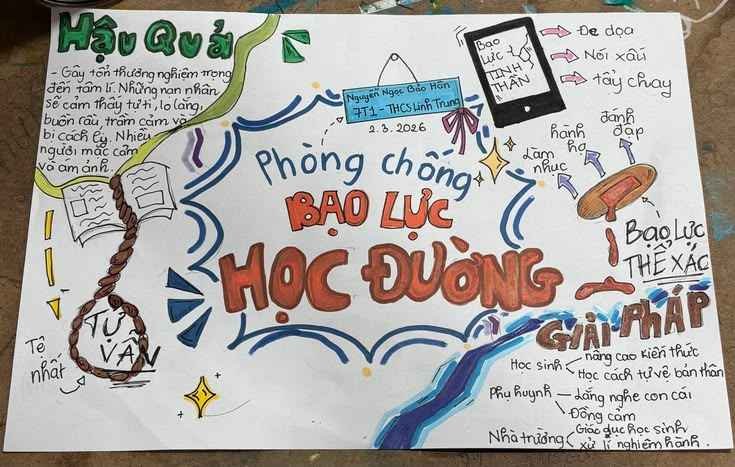 Hậu Quả
- Gây tổn thương nghiêm trọng
đến tâm lí. Những nạn nhân
sẽ cảm thấy tự ti, lo lắng,
buồn rầu, trầm cảm và
bị cách ly. Nhiều
người mặc cảm
và ám ảnh.
Nguyễn Ngọc Bảo Hân
7T1 - THCS Linh Trung
2.3.2026
Phòng chống
BẠO LỰC
HỌC ĐƯỜNG
Bạo
LỰC
TINH
THẦN
Đe dọa
Nói xấu
tẩy chay
làm
nhục
hành
hạ
đánh
đập
BẠO LỰC
THỂ XÁC
Tệ
nhất
TỰ
VẪN
GIẢI PHÁP
Học sinh
nâng cao kiến thức
Học cách tự vệ bản thân
Phụ huynh
Lắng nghe con cái
Đồng cảm
Nhà trường
Giáo dục học sinh
xử lí nghiêm hành.